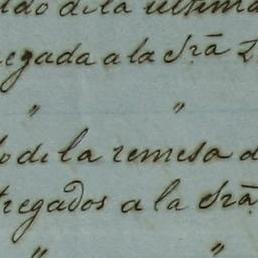 ldo de la ultima
egada a la Srã 2
" "
o de la remesa d
tregados a la Srã
" "